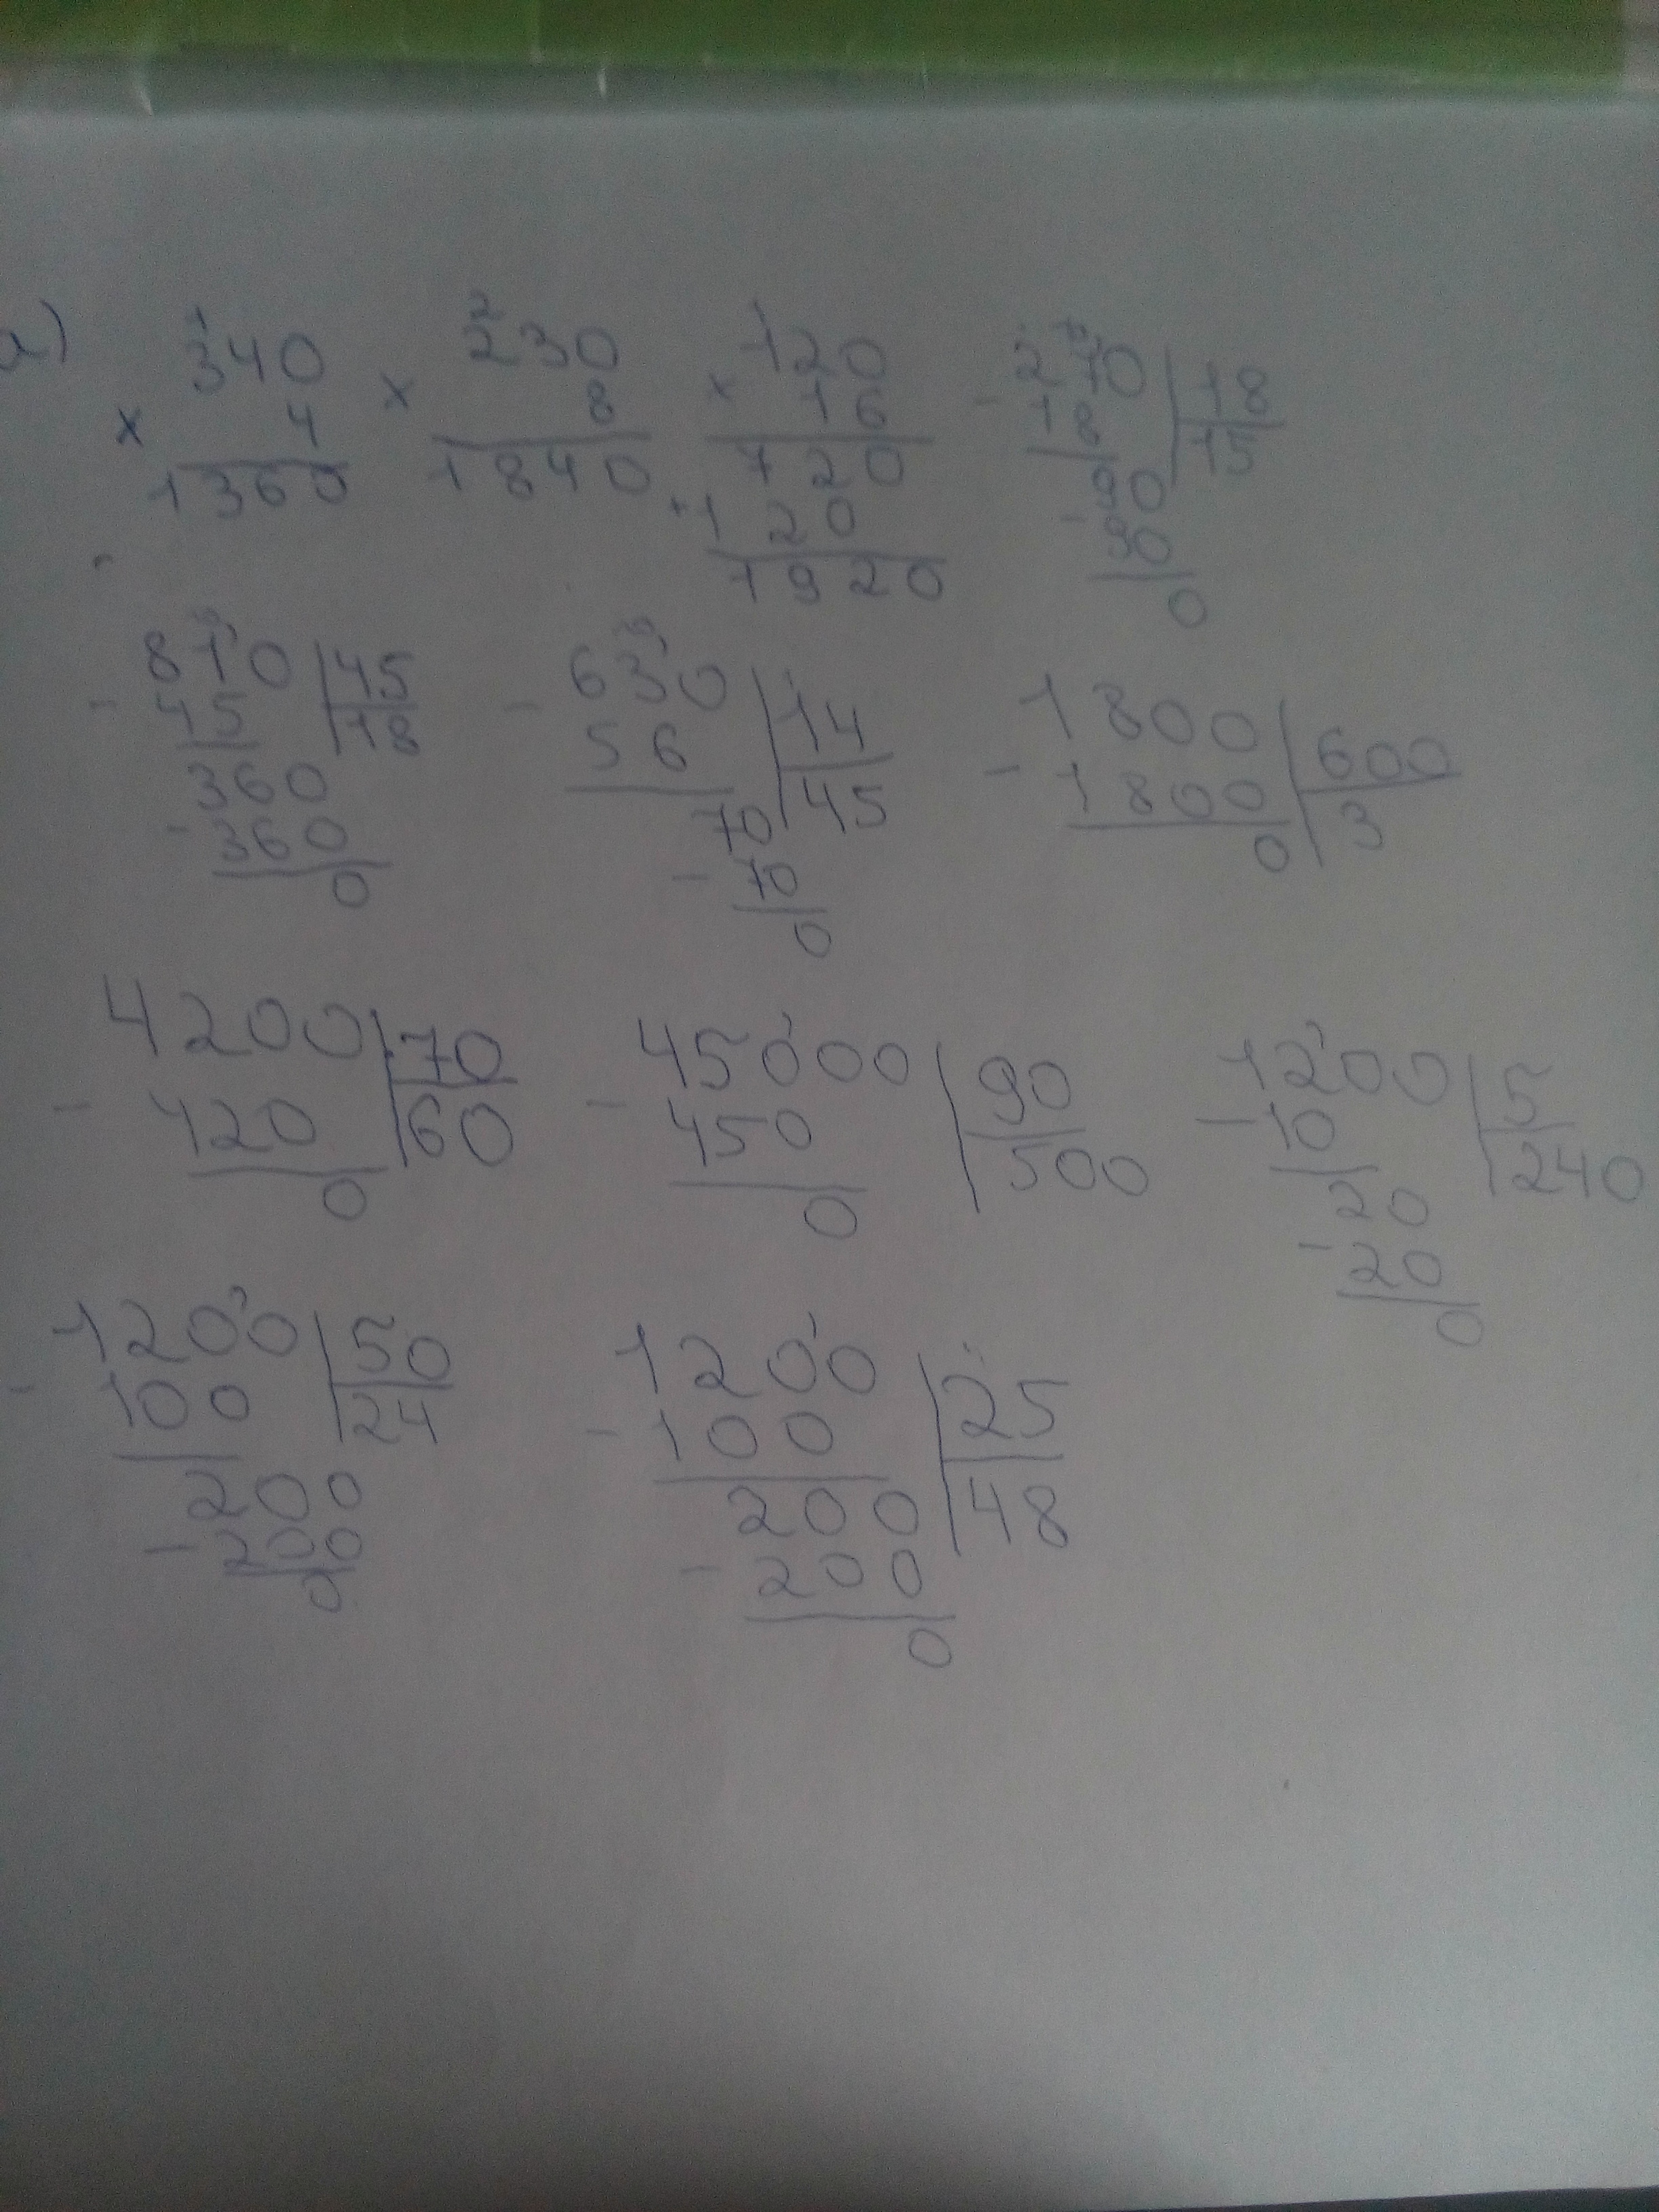 а) 340 × 4 = 1360
230 × 8 = 1840
120 × 16
720
+ 120
1920
270 | 18
- 18 | 15
90
- 90
0
810 | 45
- 45 | 18
360
- 360
0
630 | 14
- 56 | 45
70
- 70
0
1800 | 600
- 1800 | 3
0
4200 | 70
- 420 | 60
0
45000 | 90
- 450 | 500
0
1200 | 5
- 10 | 240
20
- 20
0
1200 | 50
- 100 | 24
200
- 200
0
1200 | 25
- 100 | 48
200
- 200
0